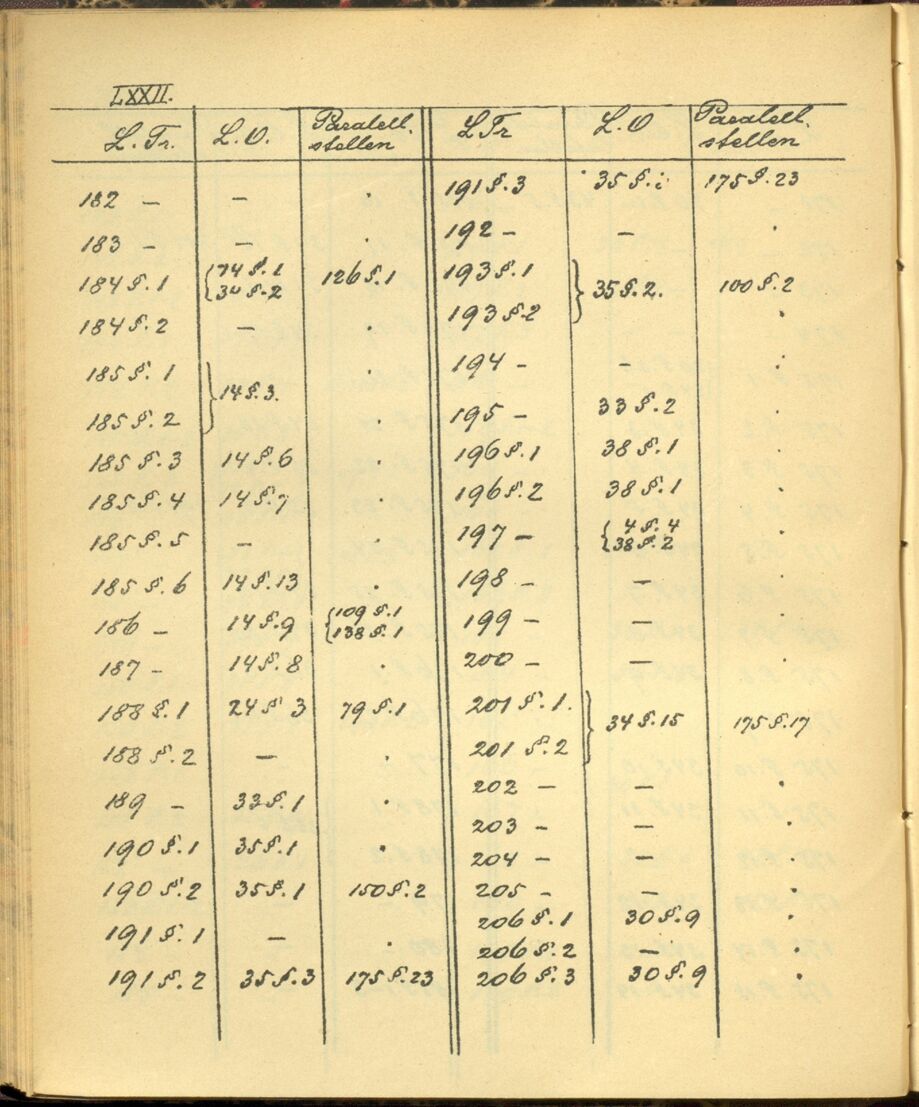 LXXII.
L. Tr. L. O. Paralell-stellen
182 – – .
183 – – .
184 §. 1 {74 §. 1 126 §. 1
§. 2
184 §. 2 – .
185 §. 1 .
} 14 §. 3.
185 §. 2 .
185 §. 3 14 §. 6 .
185 §. 4 14 §. 7 .
185 §. 5 – .
185 §. 6 14 §. 13 .
186 – 14 §. 9 {109 §. 1
138 §. 1
187 – 14 §. 8 .
188 §. 1 24 § 3 79 §. 1
188 §. 2 – .
189 – 33 §. 1 .
190 §. 1 35 §. 1 .
190 §. 2 35 §. 1 150 §. 2
191 §. 1 – .
191 §. 2 35 §. 3 175 §. 23
L Tr L. O Paralell-
stellen
191 §. 3 35 §. 175 §. 23
192 – – .
193 §. 1
} 35 §. 2. 100 §. 2
193 §. 2 .
194 – – .
195 – 33 §. 2 .
196 §. 1 38 §. 1 .
196 §. 2 38 §. 1 .
197 – {4 §. 4 .
38 §. 2
198 – – .
199 – – .
200 – – .
201 §. 1.
} 34 §. 15 175 §. 17
201 §. 2
202 – – .
203 – – .
204 – – .
205 – – .
206 §. 1 30 §. 9 .
206 §. 2 – .
206 §. 3 30 §. 9 .